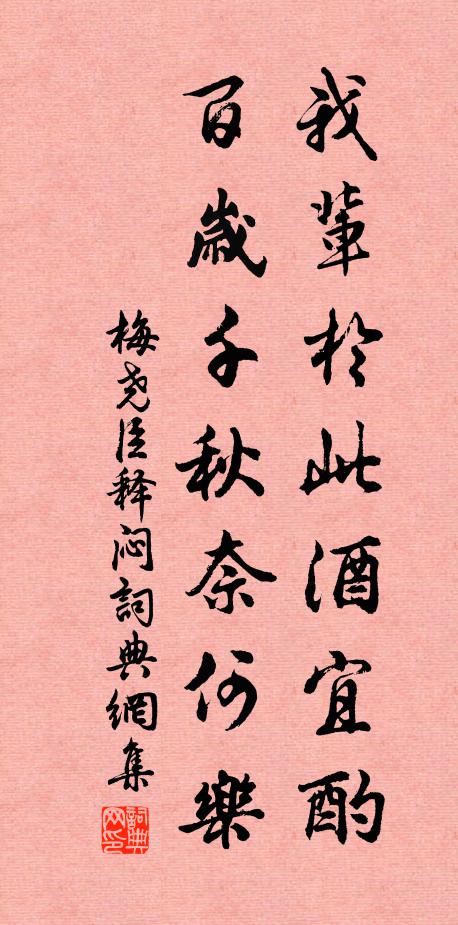 我輩於此酒宜酌
百歲千秋奈何樂
梅尧臣释闷詞典網集
詞典网印